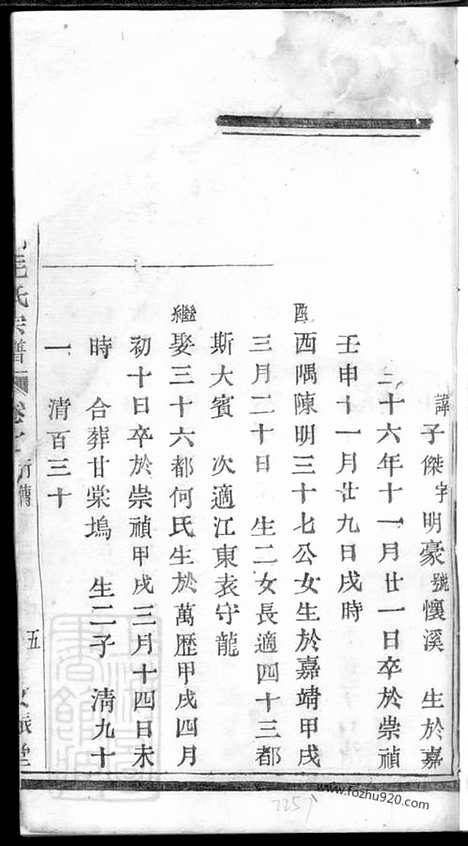 諱子傑字明豪號懷溪　生於嘉
三十六年十一月廿一日卒於崇禎
壬申十一月廿九日戌時
配西隅陳明三十七公女生於嘉靖甲戌
三月二十日　生二女長適四十三都
斯大賓　次適江東袁守龍
繼娶三十六都何氏生於萬歷甲戌四月
初十日卒於崇禎甲戌三月十四日未
時　合葬甘棠塢　生二子　清九十
一　清百三十
毛氏宗譜　卷　行傳　五
www.fozhu920.com